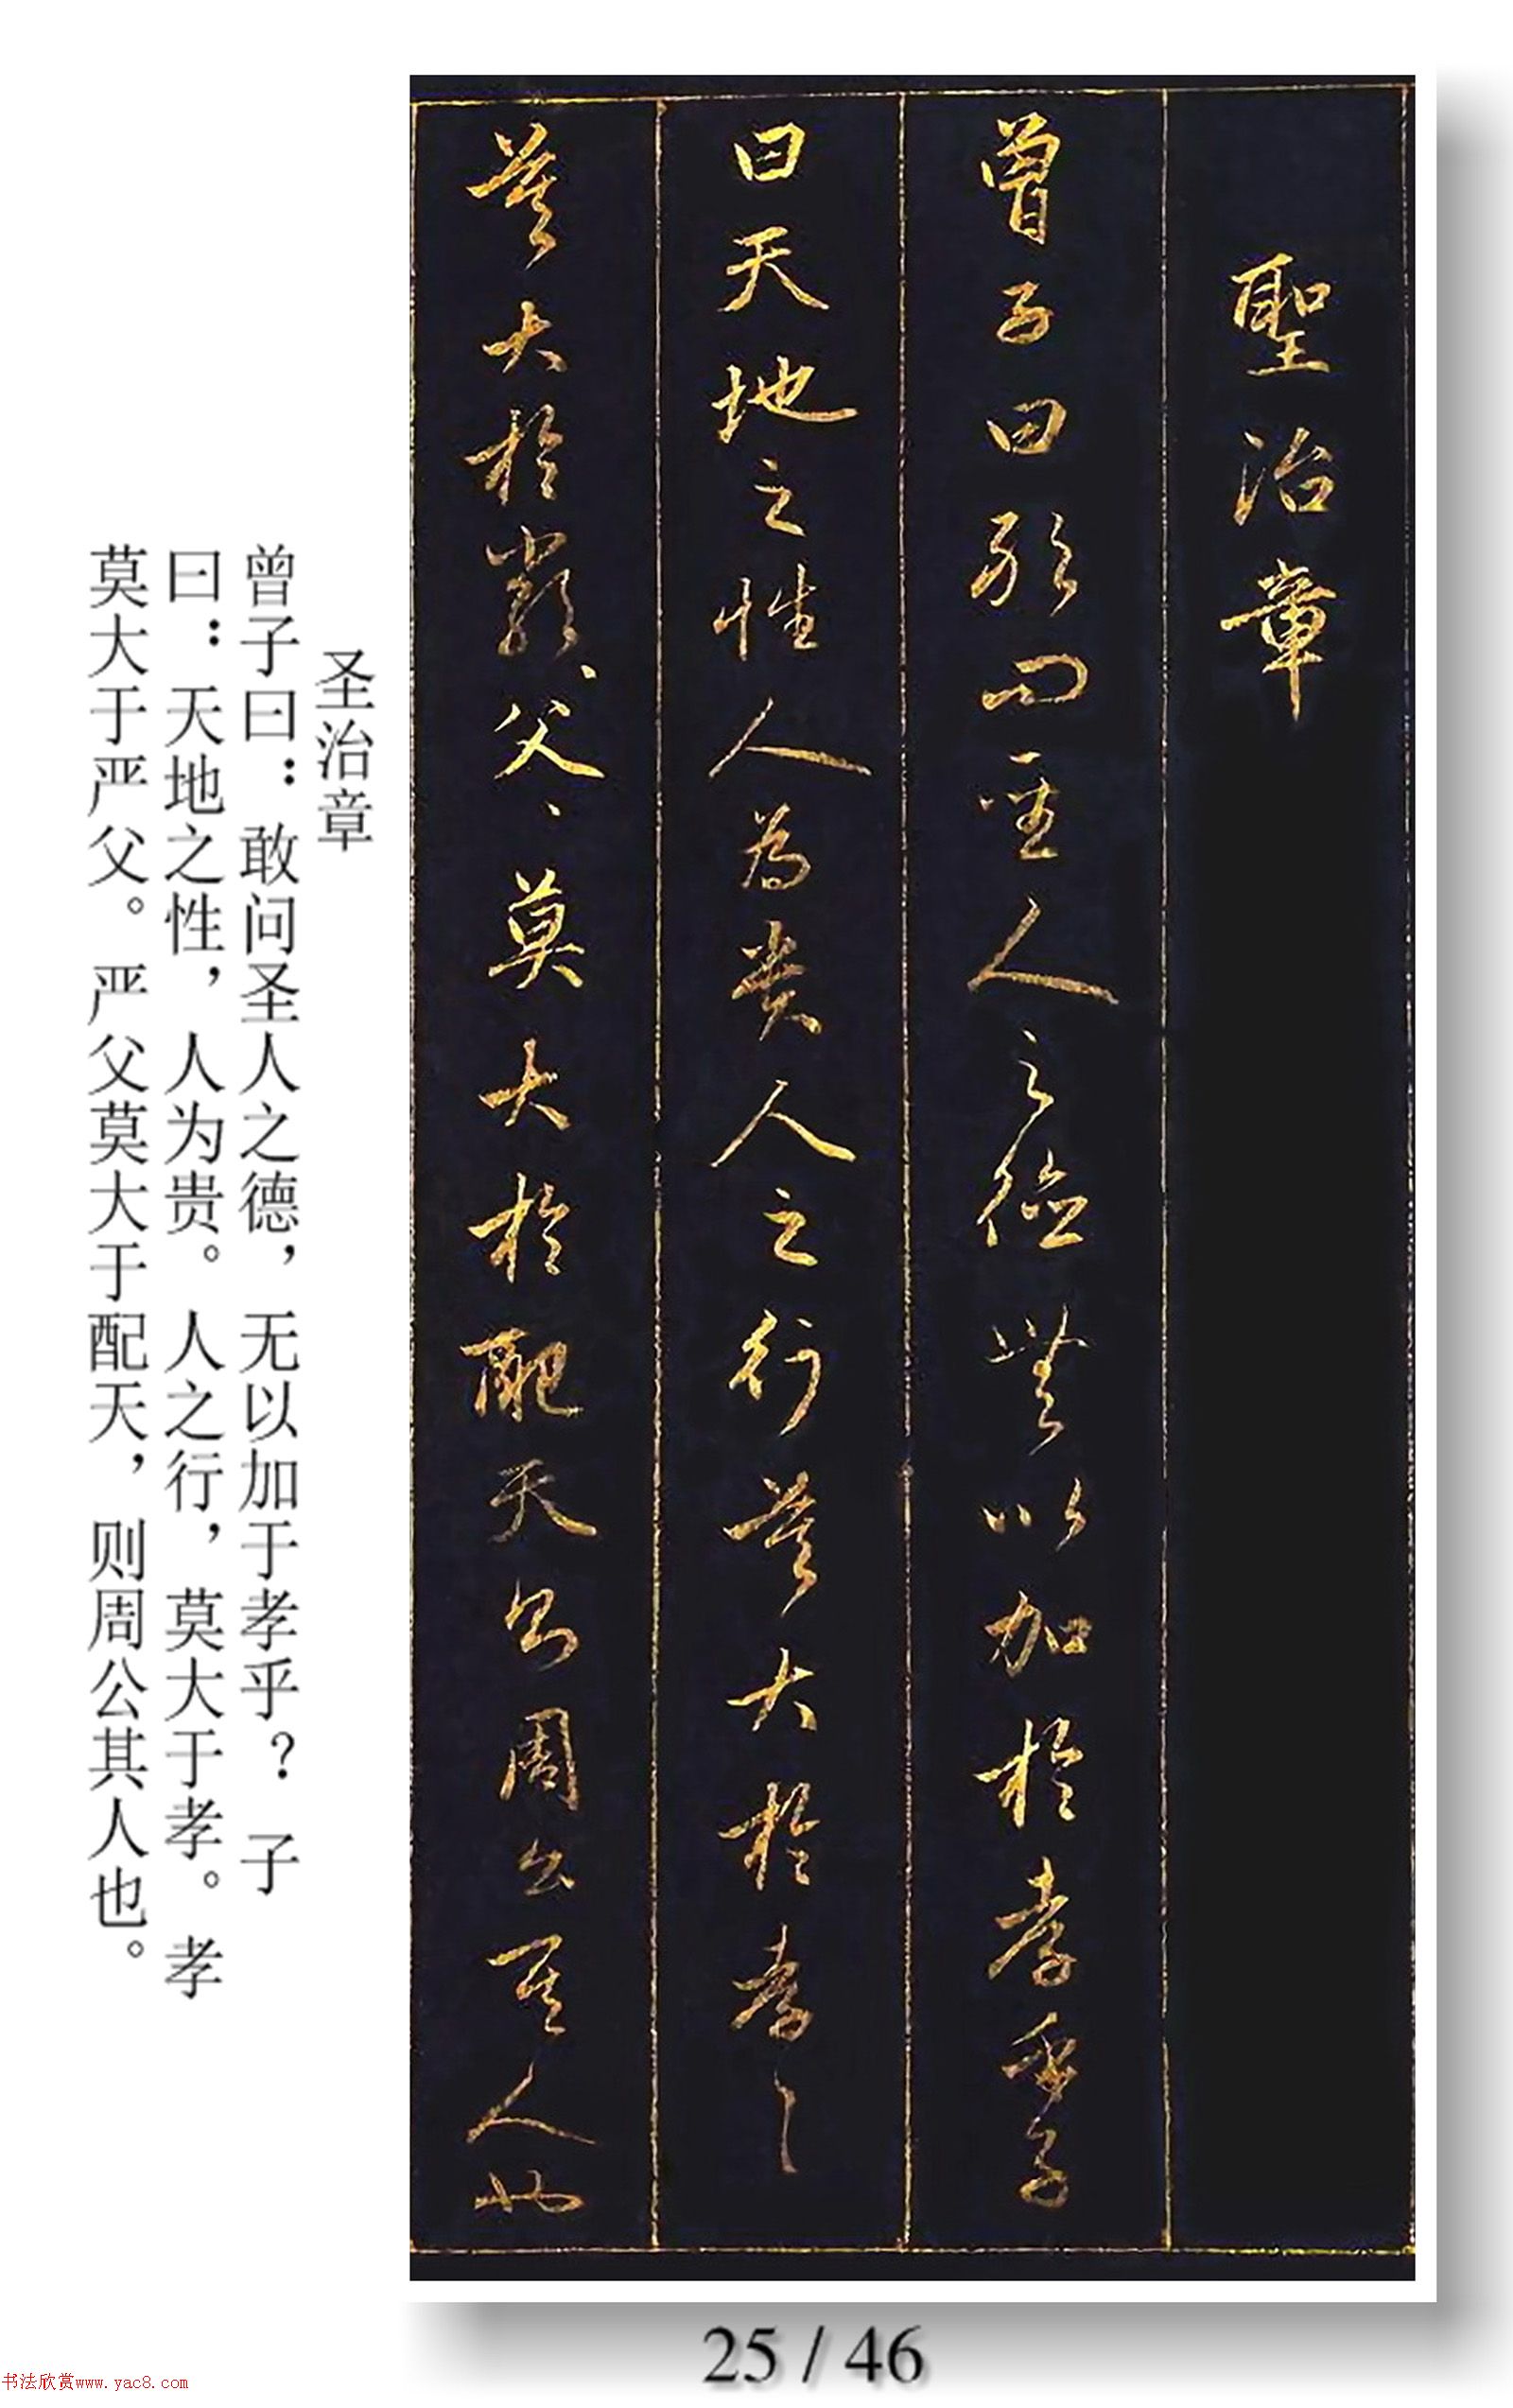 聖治章
曾子曰敢問聖人之德無以加於孝乎子
曰天地之性人為貴人之行莫大於孝〻
莫大於嚴〻父〻莫大於配天則周公其人也
圣治章
曾子曰：敢问圣人之德，无以加于孝乎？子
曰：天地之性，人为贵。人之行，莫大于孝。孝
莫大于严父。严父莫大于配天，则周公其人也。
25 / 46
书法欣赏www.yac8.com